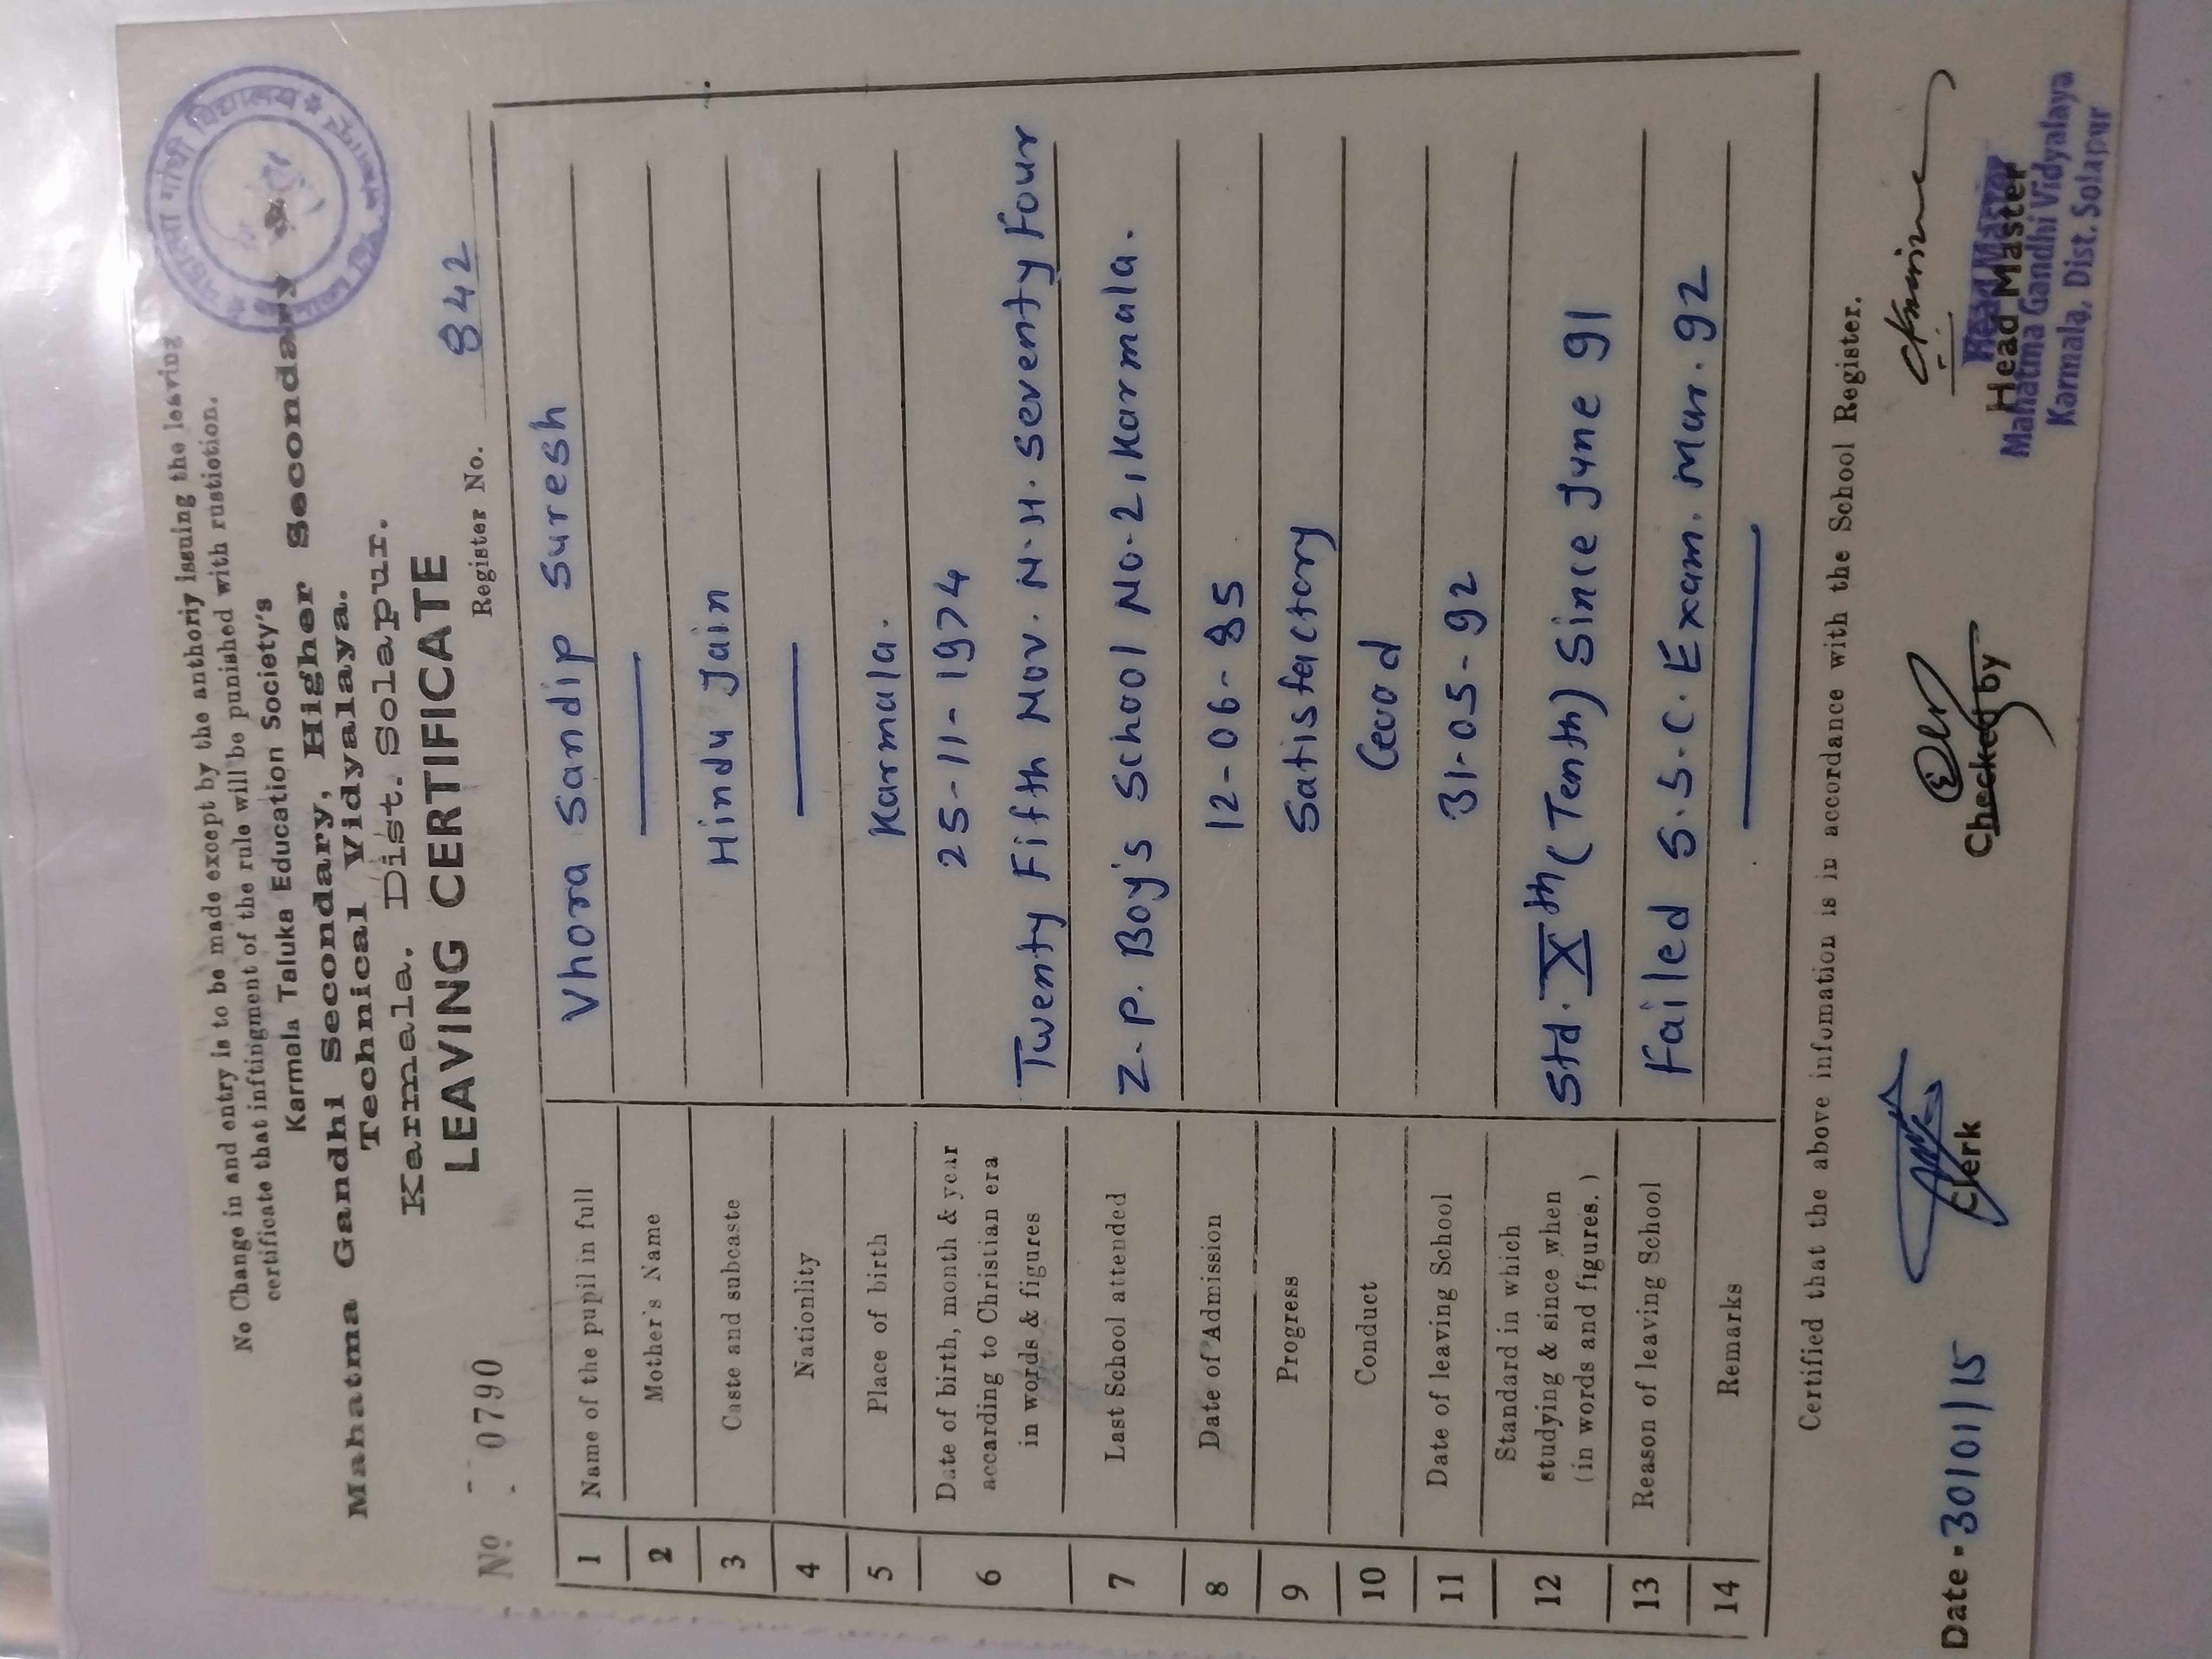 No Change in and entry is to be made except by the anthoriy issuing the leaving
certificate that inftingment of the rule will be punished with rustiction.
Karmala Taluka Education Society's
Mahatma Gandhi Secondary, Higher Secondary
Technical Vidyalaya.
Karmala. Dist. Solapur.
LEAVING CERTIFICATE
महात्मा गांधी विद्यालय
No 0790
Register No. 842
1 Name of the pupil in full Vhora Sandip Suresh
2 Mother's Name —
3 Caste and subcaste Hindu Jain
4 Nationlity —
5 Place of birth Karmala.
6 Date of birth, month & year 25-11-1974
accarding to Christian era
in words & figures Twenty Fifth Nov. N.H. Seventy Four
7 Last School attended Z.P. Boy's School No-2, Karmala.
8 Date of Admission 12-06-85
9 Progress Satisfactory
10 Conduct Good
11 Date of leaving School 31-05-92
12 Standard in which
studying & since when Std. Xth (Tenth) Since June 91
(in words and figures.)
13 Reason of leaving School Failed S.S.C. Exam. Mar. 92
14 Remarks —
Certified that the above infomation is in accordance with the School Register.
Date - 30/01/15 Clerk Checked by Head Master
Head Master
Mahatma Gandhi Vidyalaya
Karmala, Dist. Solapur